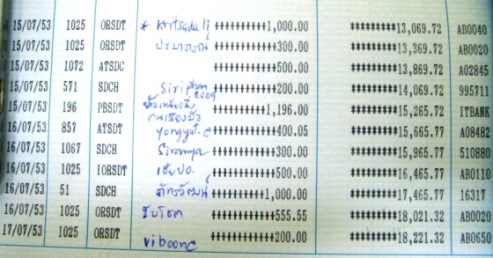 15/07/53 1025 ORSDT * kritsada ++++++++++1,000.00 *********13,069.72 AB0040
15/07/53 1025 ORSDT ++++++++++++300.00 *********13,369.72 AB0020
15/07/53 1072 ATSDC ++++++++++++500.00 *********13,869.72 A02845
15/07/53 571 SDCH ++++++++++++200.00 *********14,069.72 995711
15/07/53 196 PBSDT ++++++++++1,196.00 *********15,265.72 ITBANK
16/07/53 857 ATSDT yongyut.c ++++++++++++400.05 *********15,665.77 A08482
16/07/53 1067 SDCH ++++++++++++300.00 *********15,965.77 510880
16/07/53 1025 IORSDT ++++++++++++500.00 *********16,465.77 AB0110
16/07/53 51 SDCH ภัทรวัฒน์ ++++++++++1,000.00 *********17,465.77 16317
16/07/53 1025 ORSDT รับโชค ++++++++++++555.55 *********18,021.32 AB0020
17/07/53 1025 ORSDT viboonc ++++++++++++200.00 *********18,221.32 AB0650